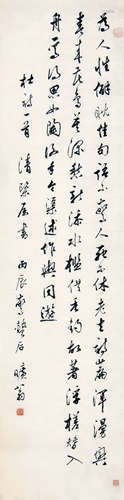 為人性僻耽佳句語不驚人死不休老去詩篇渾漫與
春來花鳥莫深愁新添水檻供垂釣故著浮槎替入
舟焉得思如陶謝手令渠述作與同遊
杜詩一首 清 書 丙辰 石 曠翁